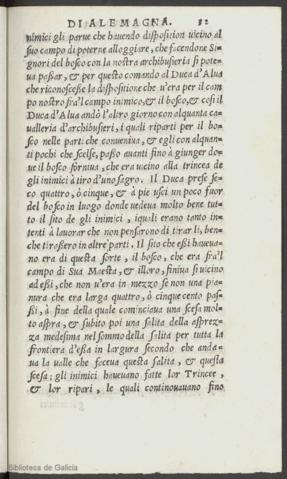 DI ALEMAGNA. 82
nimici gli parue che hauendo disposition uicino al
suo campo di poterne alloggiare, che facendone Si=
gnori del bosco con la nostra archibusieria si pote=
ua paßar, & per questo comando al Duca d'Alua
che riconosceße la dispositione che u'era per il cam
po nostro fra'l campo inimico, & il bosco, & cosi il
Duca d'Alua andò l'altro giorno con alquanta ca=
ualleria d'archibusieri, i quali riparti per il bo=
sco nelle parti che conueniua, & egli con alquan=
ti pochi che scelse, paßo auanti fino à giunger do=
ue il bosco forniua, che era uicino alla trincea de
gli inimici à tiro d'uno sagro. Il Duca prese se=
co quattro, ò cinque, & à pie usci un poco fuor
del bosco in luogo donde uedeua molto bene tut=
to il sito de gli inimici, iquali erano tanto in=
tenti à lauorar che non pensarono di tirar li, ben=
che tiraßero in altre parti. Il sito che eßi haueua=
no era di questa sorte, il bosco, che era fra'l
campo di Sua Maesta, & il loro, finiua sì uicino
ad eßi, che non u'era in mezzo se non una pia=
nura che era larga quattro, ò cinque cento paß=
ßi, à fine della quale cominciaua una scesa mol=
to aspra, & subito poi una salita della asprez=
za medesima nel sommo della salita per tutta la
frontiera d'eßa in largura secondo che anda=
ua la ualle che faceua questa salita, & questa
scesa; gli inimici haueuano fatte lor Trincee,
& lor ripari, le quali continouauano fino
Biblioteca de Galicia